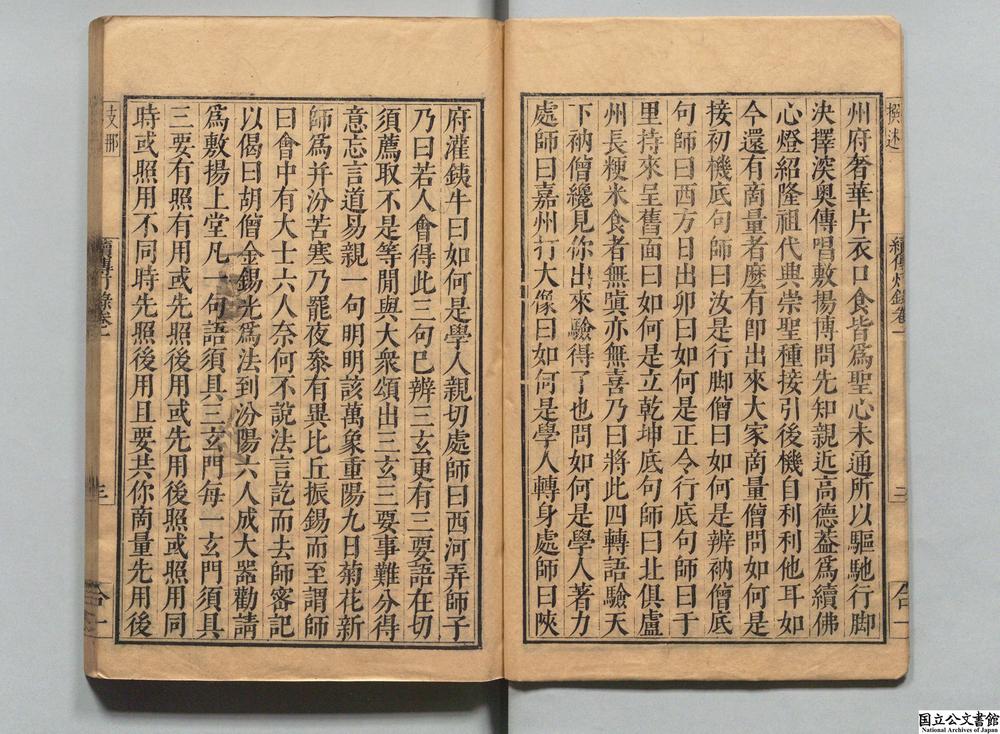 州府奢華片衣口食皆爲聖心未通所以驅馳行脚
決擇深奥傳唱敷揚博問先知親近高德葢爲續佛
心燈紹隆祖代興崇聖種接引後機自利利他耳如
今還有啇量者麽有卽出來大家啇量僧問如何是
接初機底句師曰汝是行脚僧曰如何是辨衲僧底
句師曰西方日出卯曰如何是正令行底句師曰千
里持來呈舊面曰如何是立乾坤底句師曰北俱盧
州長粳米食者無嗔亦無喜乃曰將此四轉語驗天
下衲僧纔見你出來驗得了也問如何是學人著力
處師曰嘉州打大像曰如何是學人轉身處師曰陜
府灌鐵牛曰如何是學人親切處師曰西河弄師子
乃曰若人會得此三句已辨三玄更有三要語在切
須薦取不是等閒與大衆頌出三玄三要事難分得
意忘言道易親一句明明該萬象重陽九日菊花新
師爲并汾苦寒乃罷夜參有異比丘振錫而至謂師
曰會中有大士六人奈何不說法言訖而去師密記
以偈曰胡僧金錫光爲法到汾陽六人成大器勸請
爲敷揚上堂凡一句語須具三玄門每一玄門須具
三要有照有用或先照後用或先用後照或照用同
時或照用不同時先照後用且要共你啇量先用後
續傳燈錄卷一
三
合一
國立公文書館
National Archives of Japan